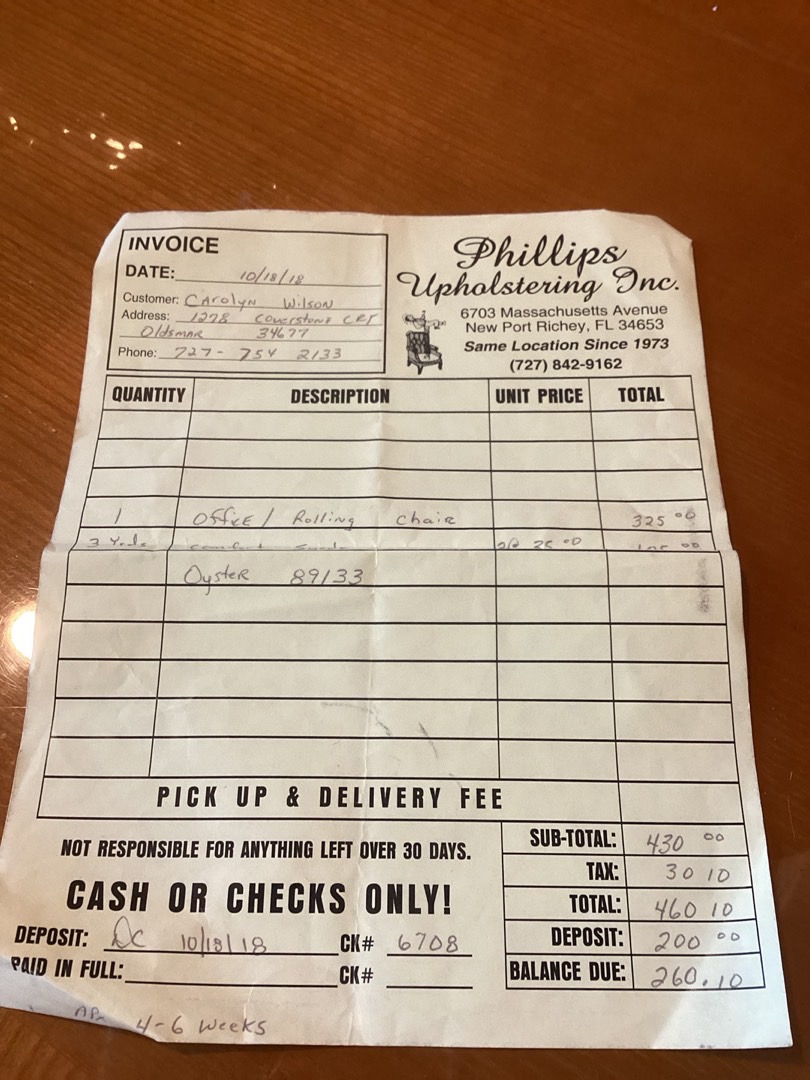 INVOICE
DATE: 10/18/18
Customer: Carolyn Wilson
Address: 1278 Coverstone CRT
Oldsmar 34677
Phone: 727-754 2133
Phillips
Upholstering Inc.
6703 Massachusetts Avenue
New Port Richey, FL 34653
Same Location Since 1973
(727) 842-9162
QUANTITY DESCRIPTION UNIT PRICE TOTAL
1 Office/ Rolling Chair 325 00
3
Oyster 89133
PICK UP & DELIVERY FEE
NOT RESPONSIBLE FOR ANYTHING LEFT OVER 30 DAYS.
CASH OR CHECKS ONLY!
DEPOSIT: DC 10/18/18 CK# 6708
PAID IN FULL: CK#
SUB-TOTAL: 430 00
TAX: 30 10
TOTAL: 460 10
DEPOSIT: 200 00
BALANCE DUE: 260.10
4-6 Weeks